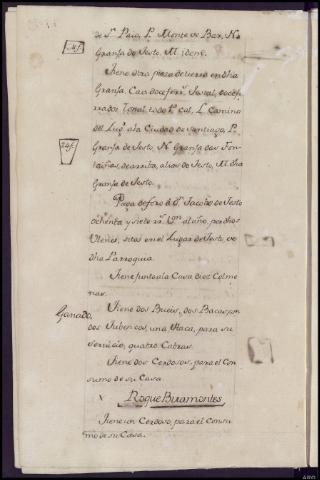 de Sn. Paio, Pte. Monte de Bar, Nte.
Granja de Sesto. M. idem.
Tiene otra pieza de tierra en dha
Granja. Casados
Tojal, todo Pte. cul, Lte. Camino
del Lugr. ala Ciudad de Santiago Pte.
Granja de Sesto. Nte. Granja das Fon
taiñas, de arriva, alias de Sesto, M. dha
Granja de Sesto.
Paga de foro á Dn. Jacobo de Sesto
ochenta, y siete rrs. Vn. al año, por dhos
Vienes, sitos en el Lugar de Sesto, de
dha Parroquia.
Tiene junto ala Casa diez Colme
nas.
Ganado. Tiene dos Bueis, dos Bacas, con
dos Jubencos, una Haca, para su
servicio, quatro Cabras.
Tiene dos Cerdosos, para el Con
sumo de su Casa.
Roque Biramontes
Tiene un Cerdoso, para el Consu
mo de su Casa.